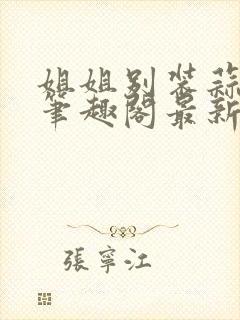 姐姐别装蒜
笔趣阁最新
張寧江